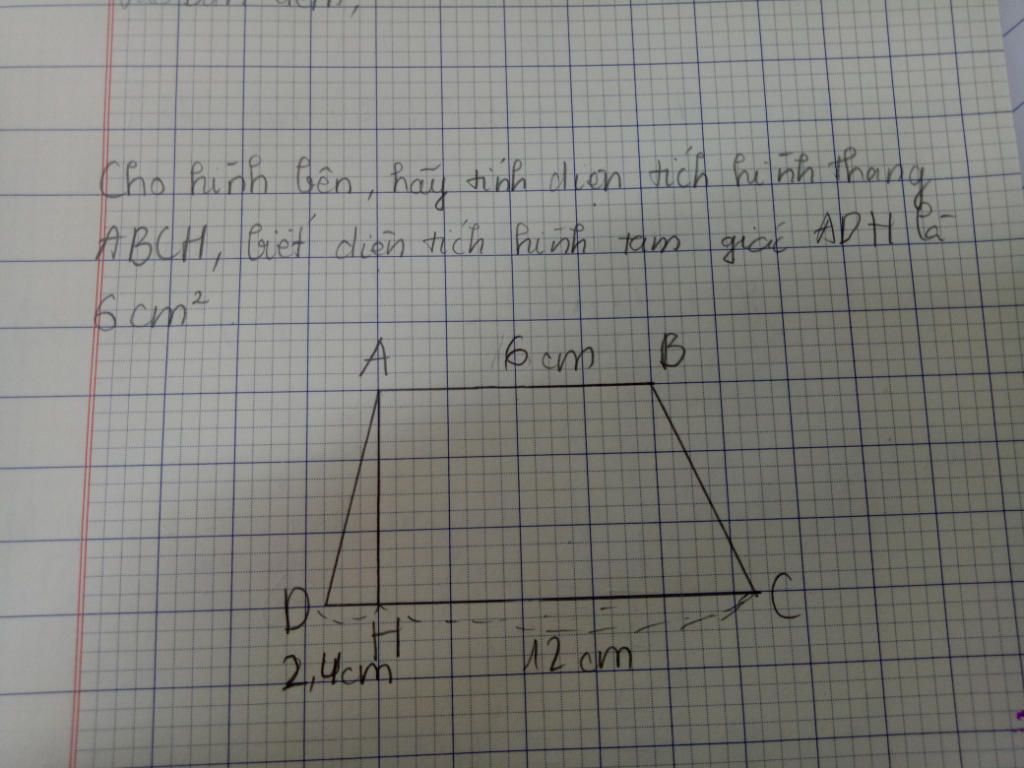 Cho hình bên, hãy tính diện tích hình thang
ABCH, biết diện tích hình tam giác ADH là
6 cm²
A 6 cm B
D H C
2,4cm 12 cm